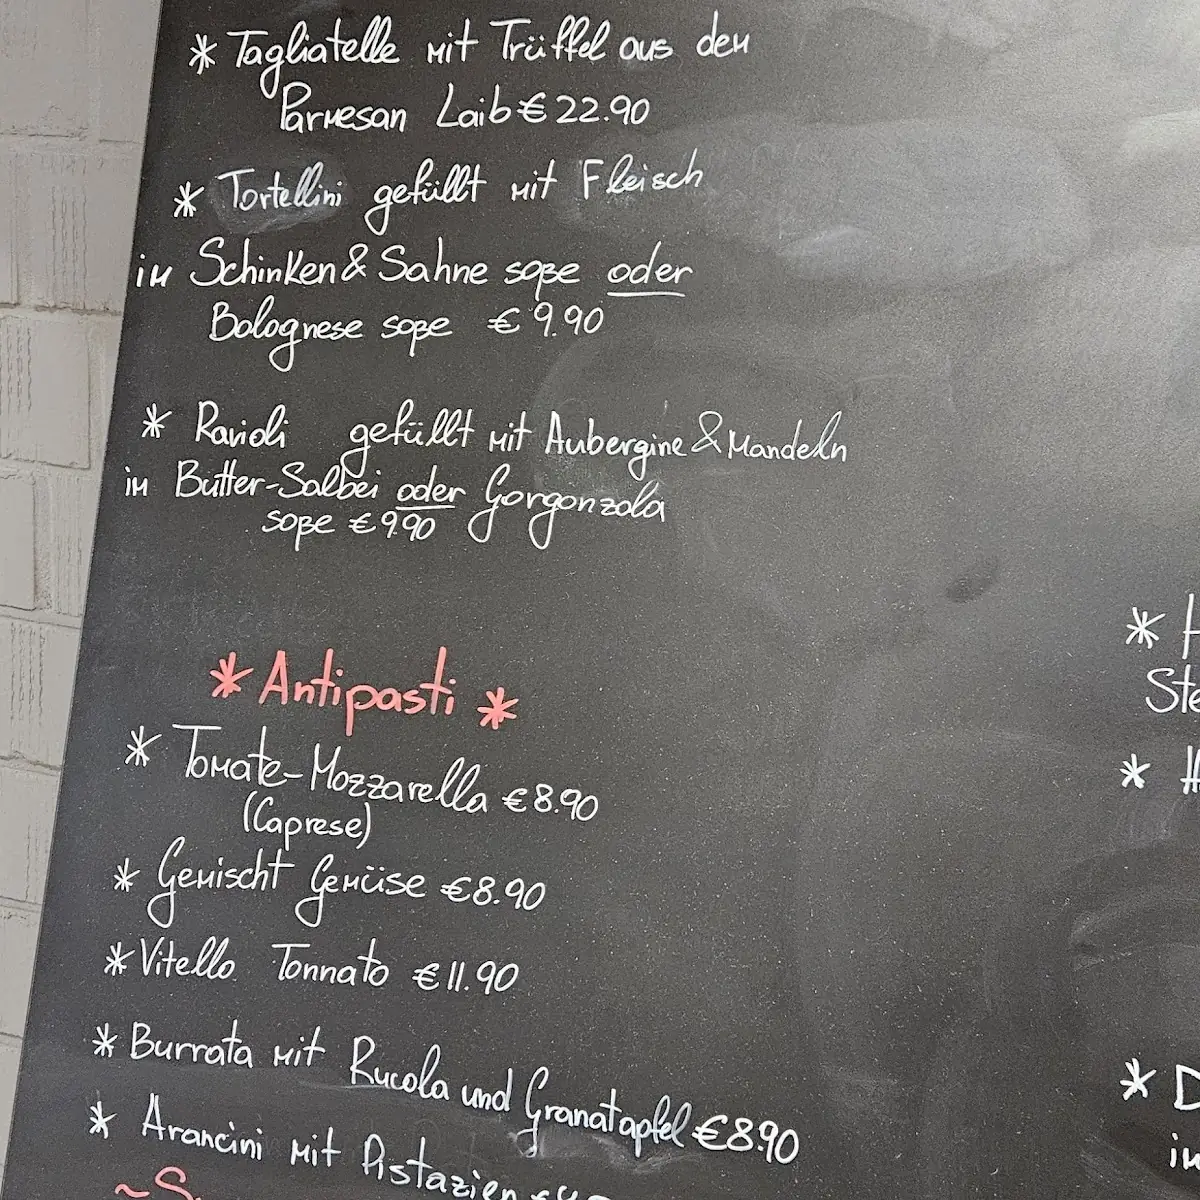 * Tagliatelle mit Trüffel aus dem
Parmesan Laib € 22.90
* Tortellini gefüllt mit Fleisch
im Schinken & Sahne soße oder
Bolognese soße € 9.90
* Ravioli gefüllt mit Aubergine & Mandeln
im Butter-Salbei oder Gorgonzola
soße € 9.90
* Antipasti *
* Tomate-Mozzarella € 8.90
(Caprese)
* Gemischt Gemüse € 8.90
* Vitello Tonnato € 11.90
* Burrata mit Rucola und Granatapfel € 8.90
* Arancini mit Pistazien
* H
Ste
* H
* D
im